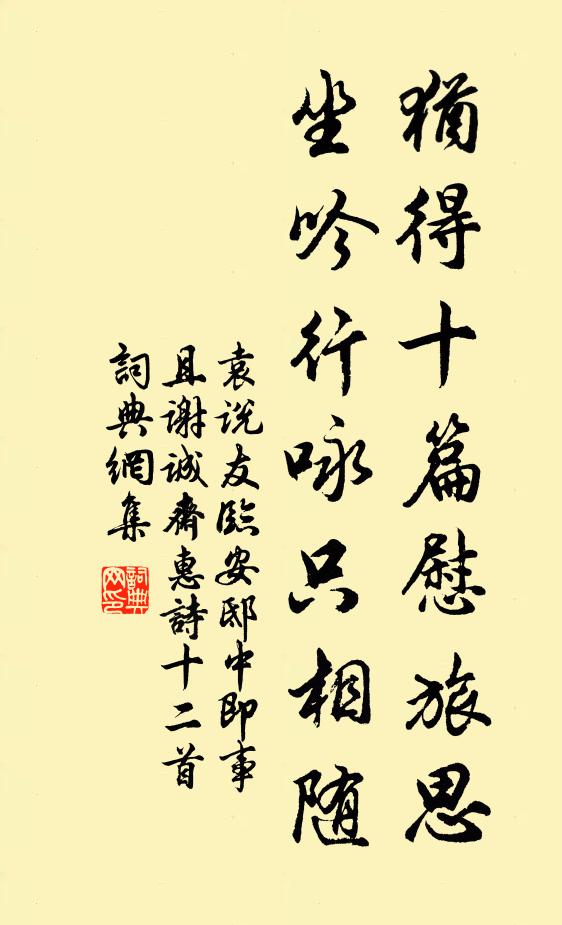 猶得十篇慰旅思
坐吟行咏只相随
袁说友臨安邸中即事
且谢诚齋惠詩十二首
詞典網集
詞典
网印